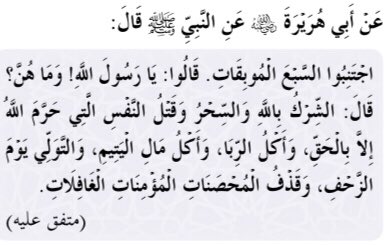 عَنْ أَبِي هُرَيْرَةَ ﵁ عَنِ النَّبِيِّ ﷺ قَالَ:
اجْتَنِبُوا السَّبْعَ الْمُوبِقَاتِ. قَالُوا: يَا رَسُولَ اللهِ! وَمَا هُنَّ؟
قَالَ: الشِّرْكُ بِاللهِ وَالسِّحْرُ وَقَتْلُ النَّفْسِ الَّتِي حَرَّمَ اللهُ
إِلاَّ بِالْحَقِّ، وَأَكْلُ الرِّبَا، وَأَكْلُ مَالِ الْيَتِيمِ، وَالتَّوَلِّي يَوْمَ
الزَّحْفِ، وَقَذْفُ الْمُحْصَنَاتِ الْمُؤْمِنَاتِ الْغَافِلَاتِ.
(متفق عليه)